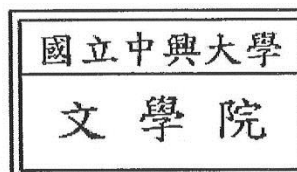 國立中興大學
文學院